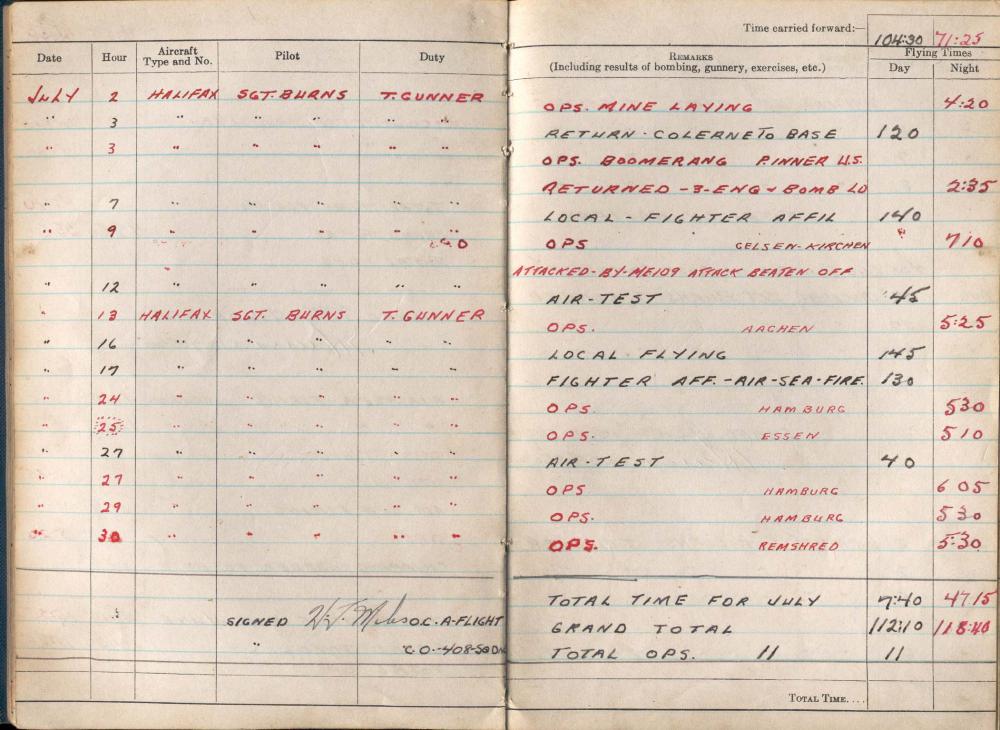 Time carried forward:— 104:30 71:25
Date Hour Aircraft Type and No. Pilot Duty REMARKS (Including results of bombing, gunnery, exercises, etc.) Flying Times Day Night
JULY 2 HALIFAX SGT. BURNS T. GUNNER OPS. MINE LAYING 4:20
" 3 " " " " " RETURN - COLERNE TO BASE 120
" 3 " " " " " OPS. BOOMERANG P.INNER U.S.
RETURNED - 3 - ENG & BOMB LD 2:35
" 7 " " " " " LOCAL - FIGHTER AFFIL 140
" 9 " " " " " OPS GELSEN-KIRCHEN 710
ATTACKED - BY - ME109 ATTACK BEATEN OFF
" 12 " " " " " AIR-TEST 45
" 13 HALIFAX SGT. BURNS T. GUNNER OPS. AACHEN 5:25
" 16 " " " " " LOCAL FLYING 145
" 17 " " " " " FIGHTER AFF. - AIR - SEA - FIRE. 130
" 24 " " " " " OPS. HAMBURG 530
" 25 " " " " " OPS. ESSEN 510
" 27 " " " " " AIR-TEST 40
" 27 " " " " " OPS HAMBURG 6 05
" 29 " " " " " OPS. HAMBURG 530
" 30 " " " " " OPS. REMSHRED 5:30
TOTAL TIME FOR JULY 7:40 47.15
SIGNED O.C. A-FLIGHT GRAND TOTAL 112:10 118:40
" C.O.-408-SQDN TOTAL OPS. 11 11
TOTAL TIME....